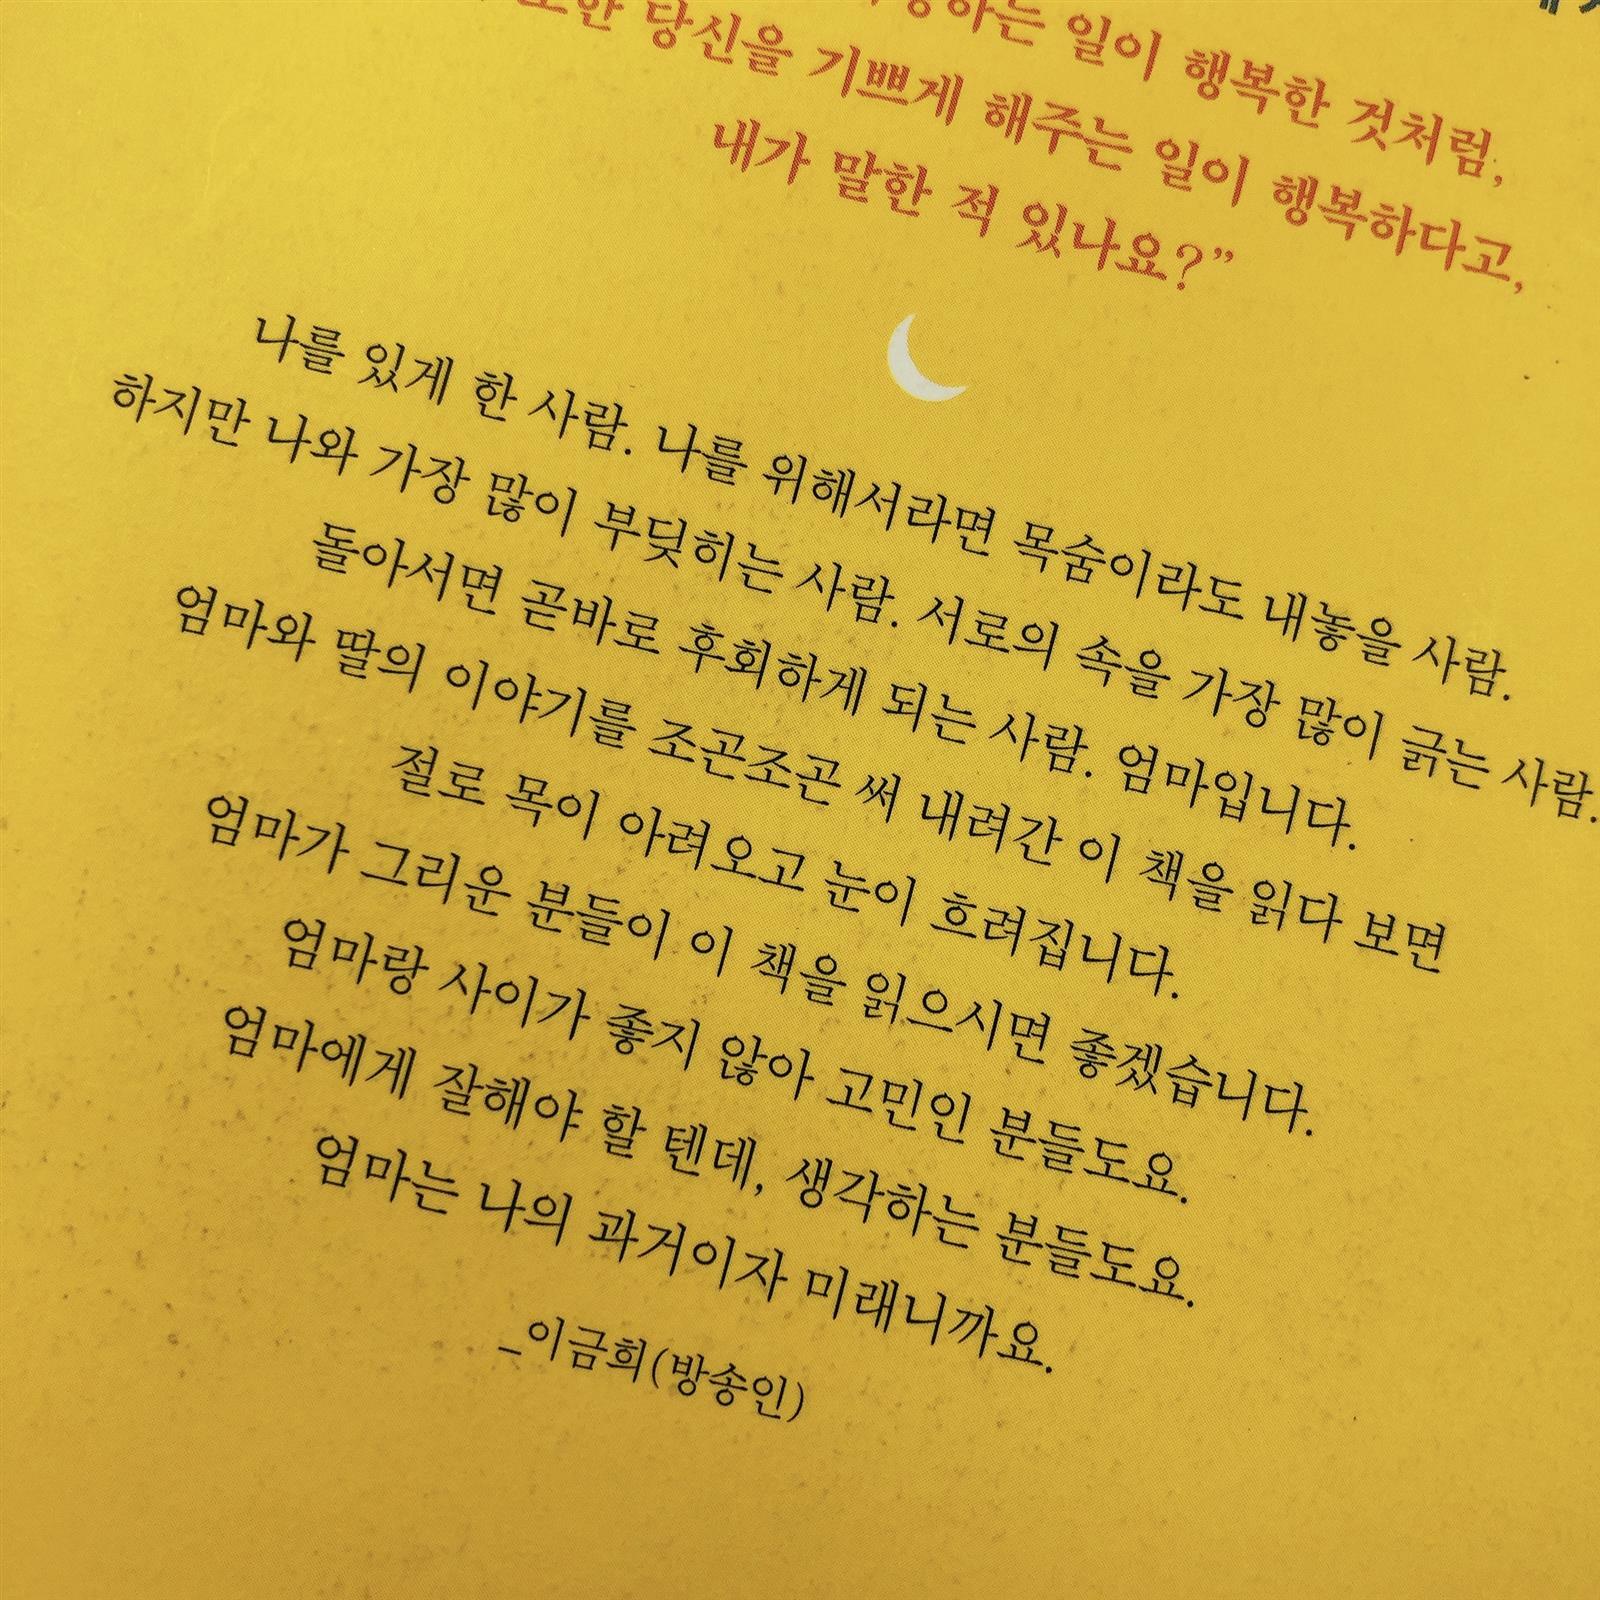 하는 일이 행복한 것처럼,
당신을 기쁘게 해주는 일이 행복하다고,
내가 말한 적 있나요?”
나를 있게 한 사람. 나를 위해서라면 목숨이라도 내놓을 사람.
하지만 나와 가장 많이 부딪히는 사람. 서로의 속을 가장 많이 긁는 사람.
돌아서면 곧바로 후회하게 되는 사람. 엄마입니다.
엄마와 딸의 이야기를 조곤조곤 써 내려간 이 책을 읽다 보면
절로 목이 아려오고 눈이 흐려집니다.
엄마가 그리운 분들이 이 책을 읽으시면 좋겠습니다.
엄마랑 사이가 좋지 않아 고민인 분들도요.
엄마에게 잘해야 할 텐데, 생각하는 분들도요.
엄마는 나의 과거이자 미래니까요.
_이금희(방송인)